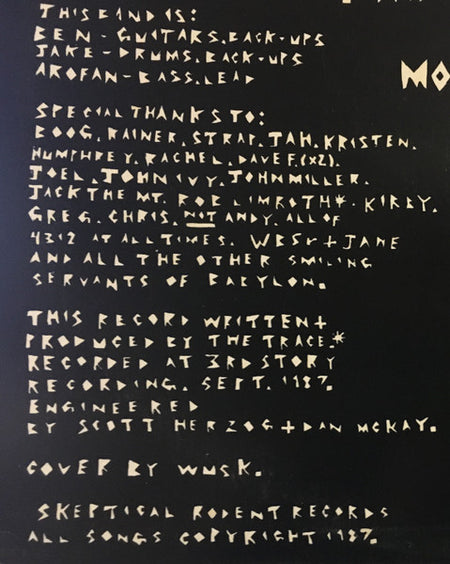 THIS BAND IS:
BEN - GUITARS, BACK-UPS
JAKE - DRUMS, BACK-UPS
AROFAN - BASS, LEAD
MO
SPECIAL THANKS TO:
BOOG, RAINER, STRAP, JAH, KRISTEN,
HUMPHREY, RACHEL, DAVE F. (X2),
JOEL, JOHN IVY, JOHN MILLER,
JACK THE MT. ROB LIMROTH*. KIRBY,
GREG, CHRIS, NOT ANDY, ALL OF
4312 AT ALL TIMES. WBSU + JANE
AND ALL THE OTHER SMILING
SERVANTS OF BABYLON.
THIS RECORD WRITTEN +
PRODUCED BY THE TRACE.*
RECORDED AT 3RD STORY
RECORDING, SEPT. 1987.
ENGINEERED
BY SCOTT HERZOG + DAN MCKAY.
COVER BY WMSK.
SKEPTICAL RODENT RECORDS
ALL SONGS COPYRIGHT 1987.